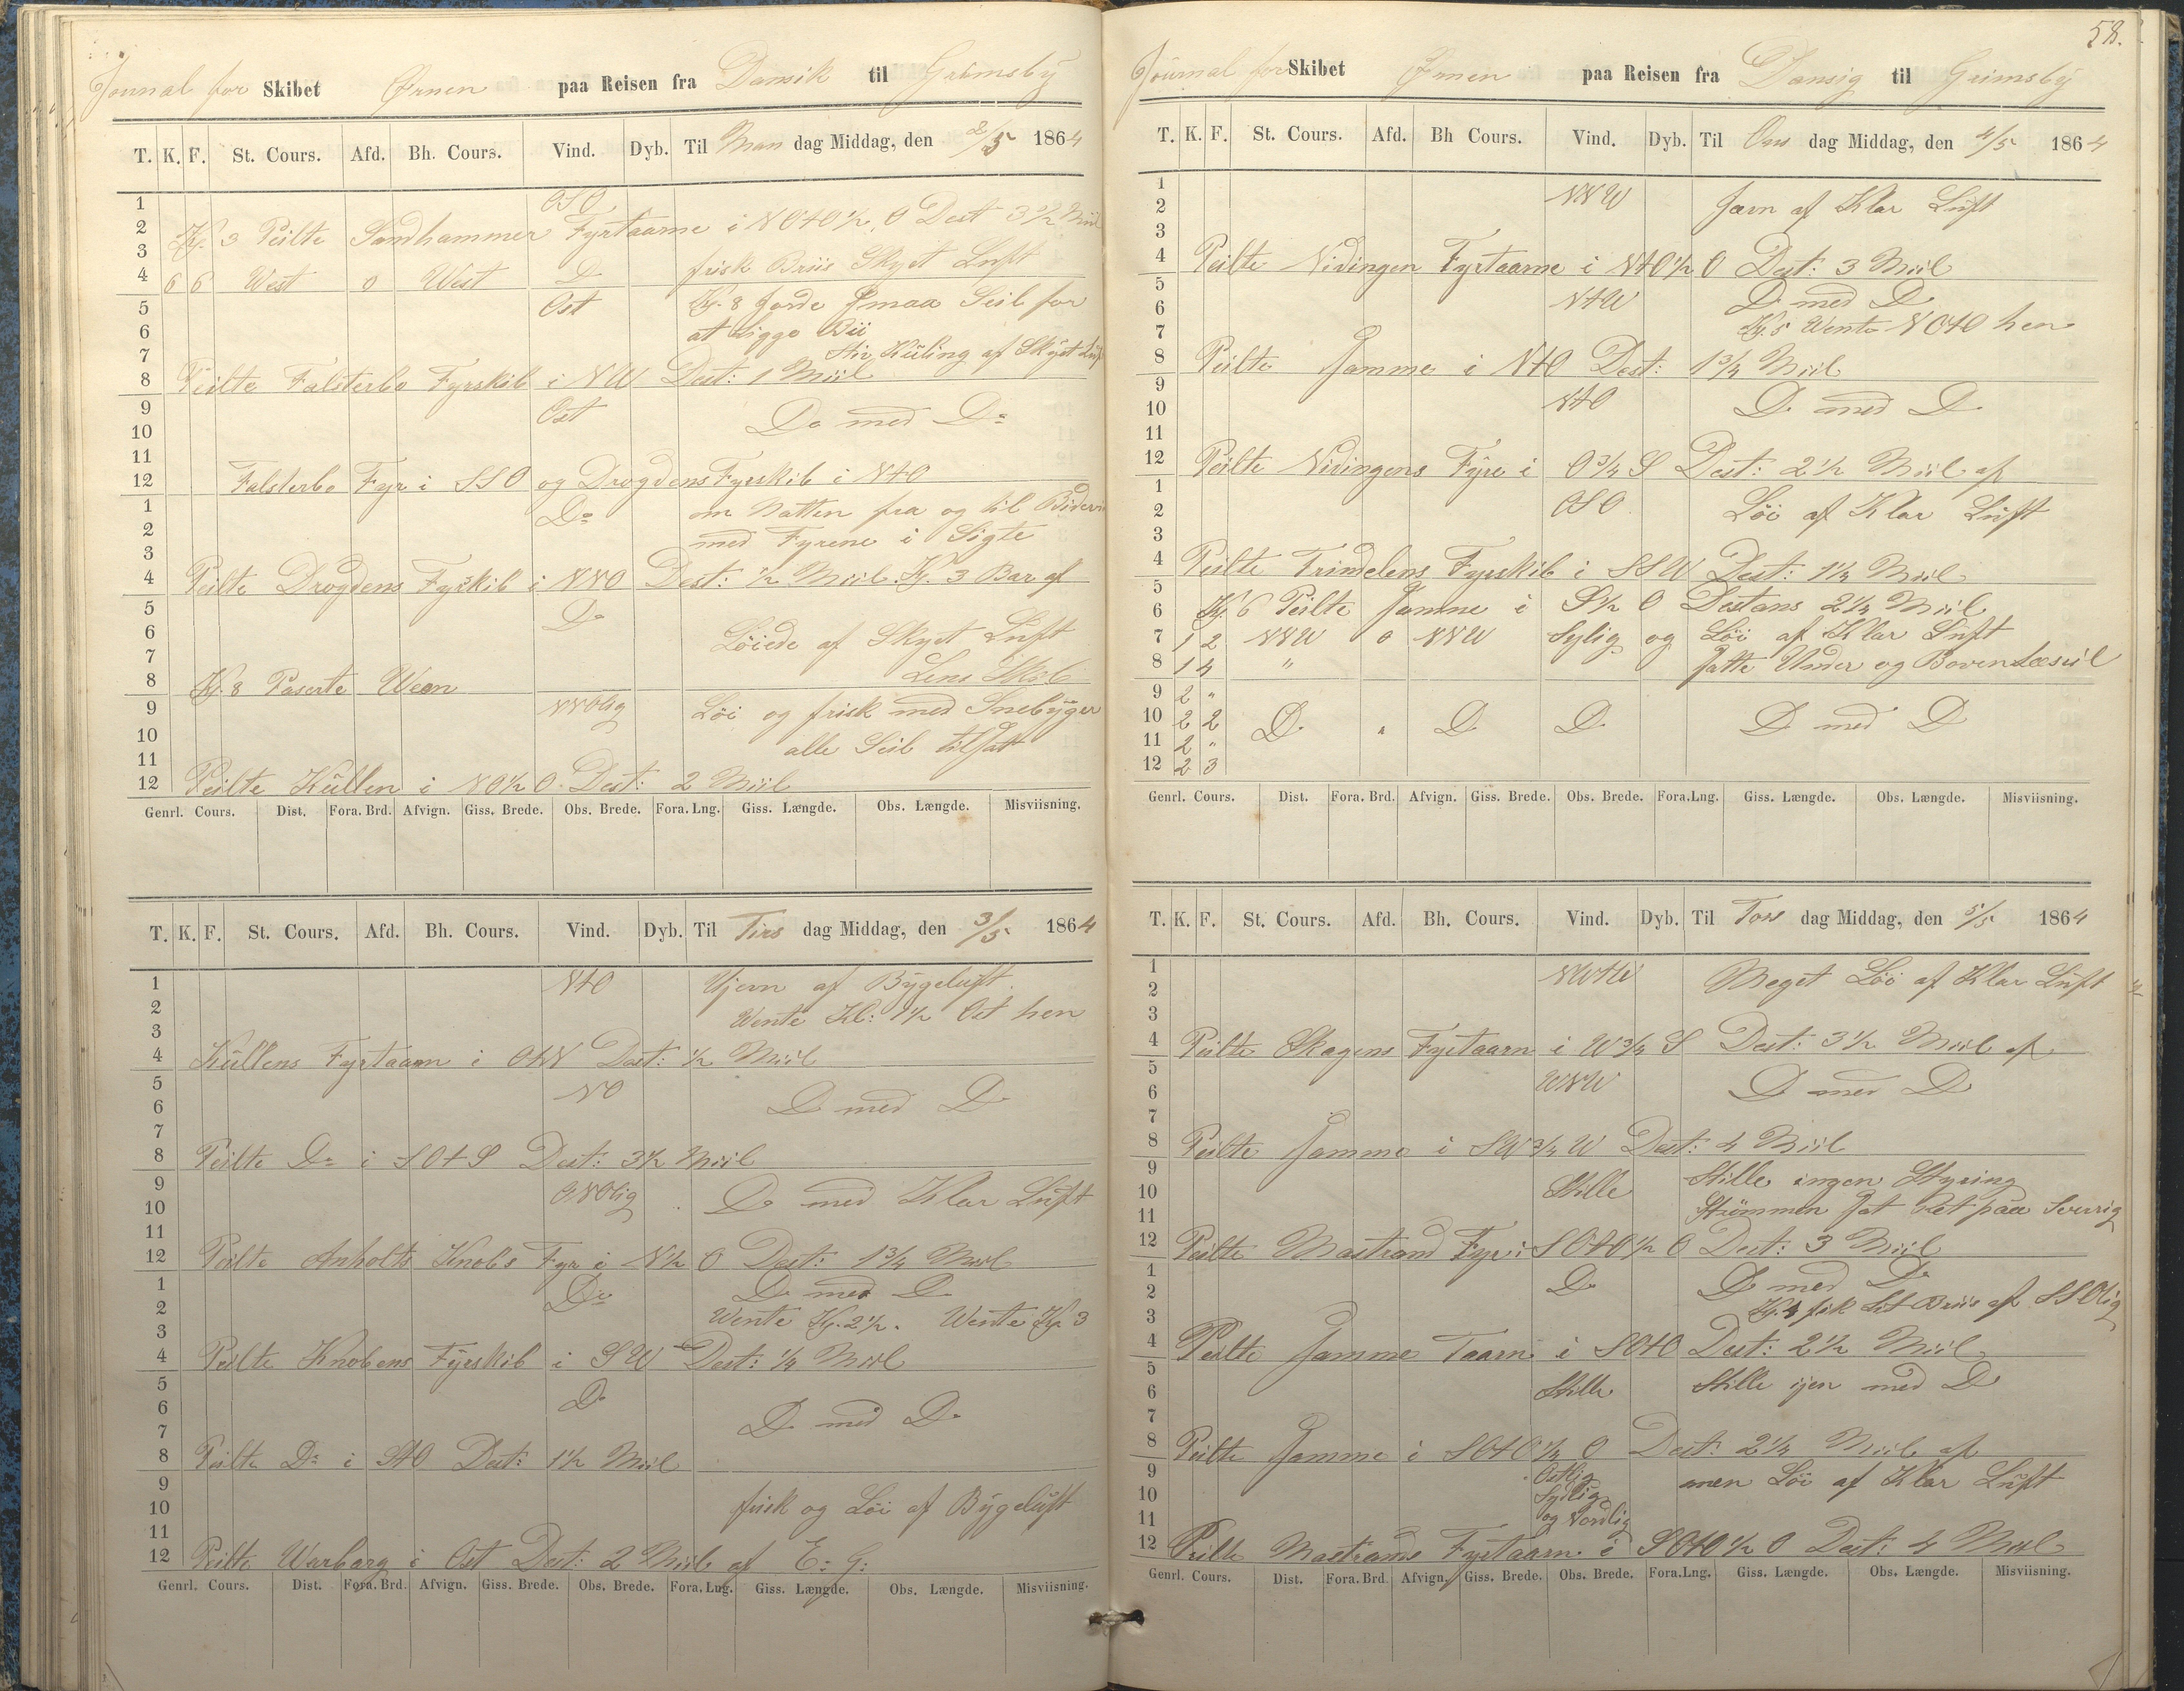 Journal for Skibet Ørnen paa Reisen fra Dansik til Grimsby
T. K. F. St. Cours. Afd. Bh. Cours. Vind. Dyb. Til Man dag Middag, den 2/5 1864
1 OSO
2 Kl. 3 Peilte Sandhammer Fyrtaarne i NOtO 1/2 O Dest 3 1/2 Miil
3 frisk Briis Skyet Luft
4 6 6 West 0 West Do
5 Ost Kl. 8 giorde Smaa Seil for
6 at Ligge Bii
7 Stiv Küling af Skyet Luft
8 Peilte Falsterbo Fyrskib i NW Dest: 1 Miil
9 Ost Do med Do
10
11
12 Falsterbo Fyr i SSO og Drogdens Fyrskib i NtO
1 Do om Natten fra og til
2 med Fyrene i Sigte
3
4 Peilte Drogdens Fyrskib i NNO Dest: 1/2 Miil Kl. 3 Bar af
5 Do
6 Løiede af Skyet Luft
7 Lens Skib
8 Kl. 8 Paserte Ween
9 NNOlig Löi og frisk med Snebÿger
10 alle Seil tilsatt
11
12 Peilte Küllen i NO 1/2 O Dest: 2 Miil
Genrl. Cours. Dist. Fora. Brd. Afvign. Giss. Brede. Obs. Brede. Fora. Lng. Giss. Længde. Obs. Længde. Misviisning.
T. K. F. St. Cours. Afd. Bh. Cours. Vind. Dyb. Til Tirs dag Middag, den 3/5 1864
1 NtO Ujevn af Bÿgeluft
2 Wente Kl: 1 1/2 Ost hen
3
4 Küllens Fyrtaarn i OtN Dest: 1/2 Miil
5 NO
6 Do med Do
7
8 Peilte Do i SOtS Dest: 3 1/2 Miil
9 ONOlig Do med Klar Lüft
10
11
12 Peilte Anholts Knobs Fyr i N 1/2 O Dest: 1 3/4 Miil
1 Do Do med Do
2 Wente Kl. 2 1/2. Wente Kl. 3
3
4 Peilte Knobens Fÿrskib i SW Dest: 1/4 Miil
5 Do
6 Do med Do
7
8 Peilte Do i StO Dest: 1 1/2 Miil
9
10 frisk og Löi af Bÿgelüft
11
12 Peilte Warbarg i Ost Dest: 2 Miil af E: G:
Genrl. Cours. Dist. Fora. Brd. Afvign. Giss. Brede. Obs. Brede. Fora. Lng. Giss. Længde. Obs. Længde. Misviisning.
58.
Journal for Skibet Ørnen paa Reisen fra Dansig til Grimsby
T. K. F. St. Cours. Afd. Bh Cours. Vind. Dyb. Til Ons dag Middag, den 4/5 1864
1 NNW Jævn af Klar Lüft
2
3
4 Peilte Nidingen Fyrtaarne i NtO 1/2 O Dest: 3 Miil
5 NtW Do med Do
6 Kl. 5 Wente NOtO hen
7
8 Peilte Samme i NtO Dest: 1 3/4 Miil
9 NtO Do med Do
10
11
12 Peilte Nidingens Fÿre i O 3/4 S Dest: 2 1/2 Miil af
1 OSO Löi af Klar Lüft
2
3
4 Peilte Trindelens Fyrskib i SSW Dest: 1 1/4 Miil
5
6 Kl. 6 Peilte Samme i S 1/2 O Destans 2 1/4 Miil
7 1 2 NNW 0 NNW Sylig og Löi af Klar Lüft
8 1 4 " Satte Under og Bovenlæseil
9 2 "
10 2 2 Do " Do Do Do med Do
11 2 "
12 2 3
Genrl. Cours. Dist. Fora. Brd. Afvign. Giss. Brede. Obs. Brede. Fora. Lng. Giss. Længde. Obs. Længde. Misviisning.
T. K. F. St. Cours. Afd. Bh. Cours. Vind. Dyb. Til Tors dag Middag, den 5/5 1864
1 NWtW Meget Löi af Klar Lüft
2
3
4 Peilte Skagens Fyrtaarn i W 3/4 S Dest: 3 1/2 Miil af
5 WNW Do med Do
6
7
8 Peilte Samme i SW 3/4 W Dest: 4 Miil
9 Stille Stille ingen Styring
10 Strömmen Sat Ret paa Sverrig
11
12 Peilte Mastrand Fyr i SOtO 1/2 O Dest: 3 Miil
1 Do Do med Do
2 Kl. 4 fik Let Briis af SSOlig
3
4 Peilte Samme Taarn i SOtO Dest: 2 1/2 Miil
5 Stille Stille ijen med Do
6
7
8 Peilte Samme i SOtO 1/4 O Dest: 2 1/4 Miil af
9 Ostlig men Löi af Klar Lüft
10 Sydlig
11 og Nordlig
12 Peilte Mastrands Fyrtaarn i SOtO 1/2 O Dest: 4 Miil
Genrl. Cours. Dist. Fora. Brd. Afvign. Giss. Brede. Obs. Brede. Fora. Lng. Giss. Længde. Obs. Længde. Misviisning.